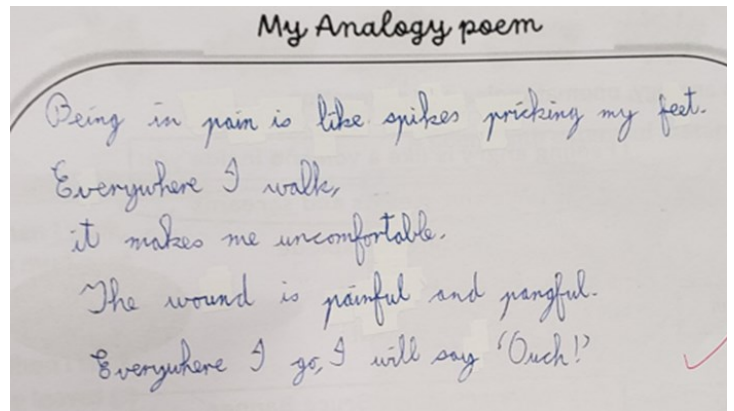 My Analogy poem
Being in pain is like spikes pricking my feet.
Everywhere I walk,
it makes me uncomfortable.
The wound is painful and pangful.
Everywhere I go, I will say 'Ouch!'